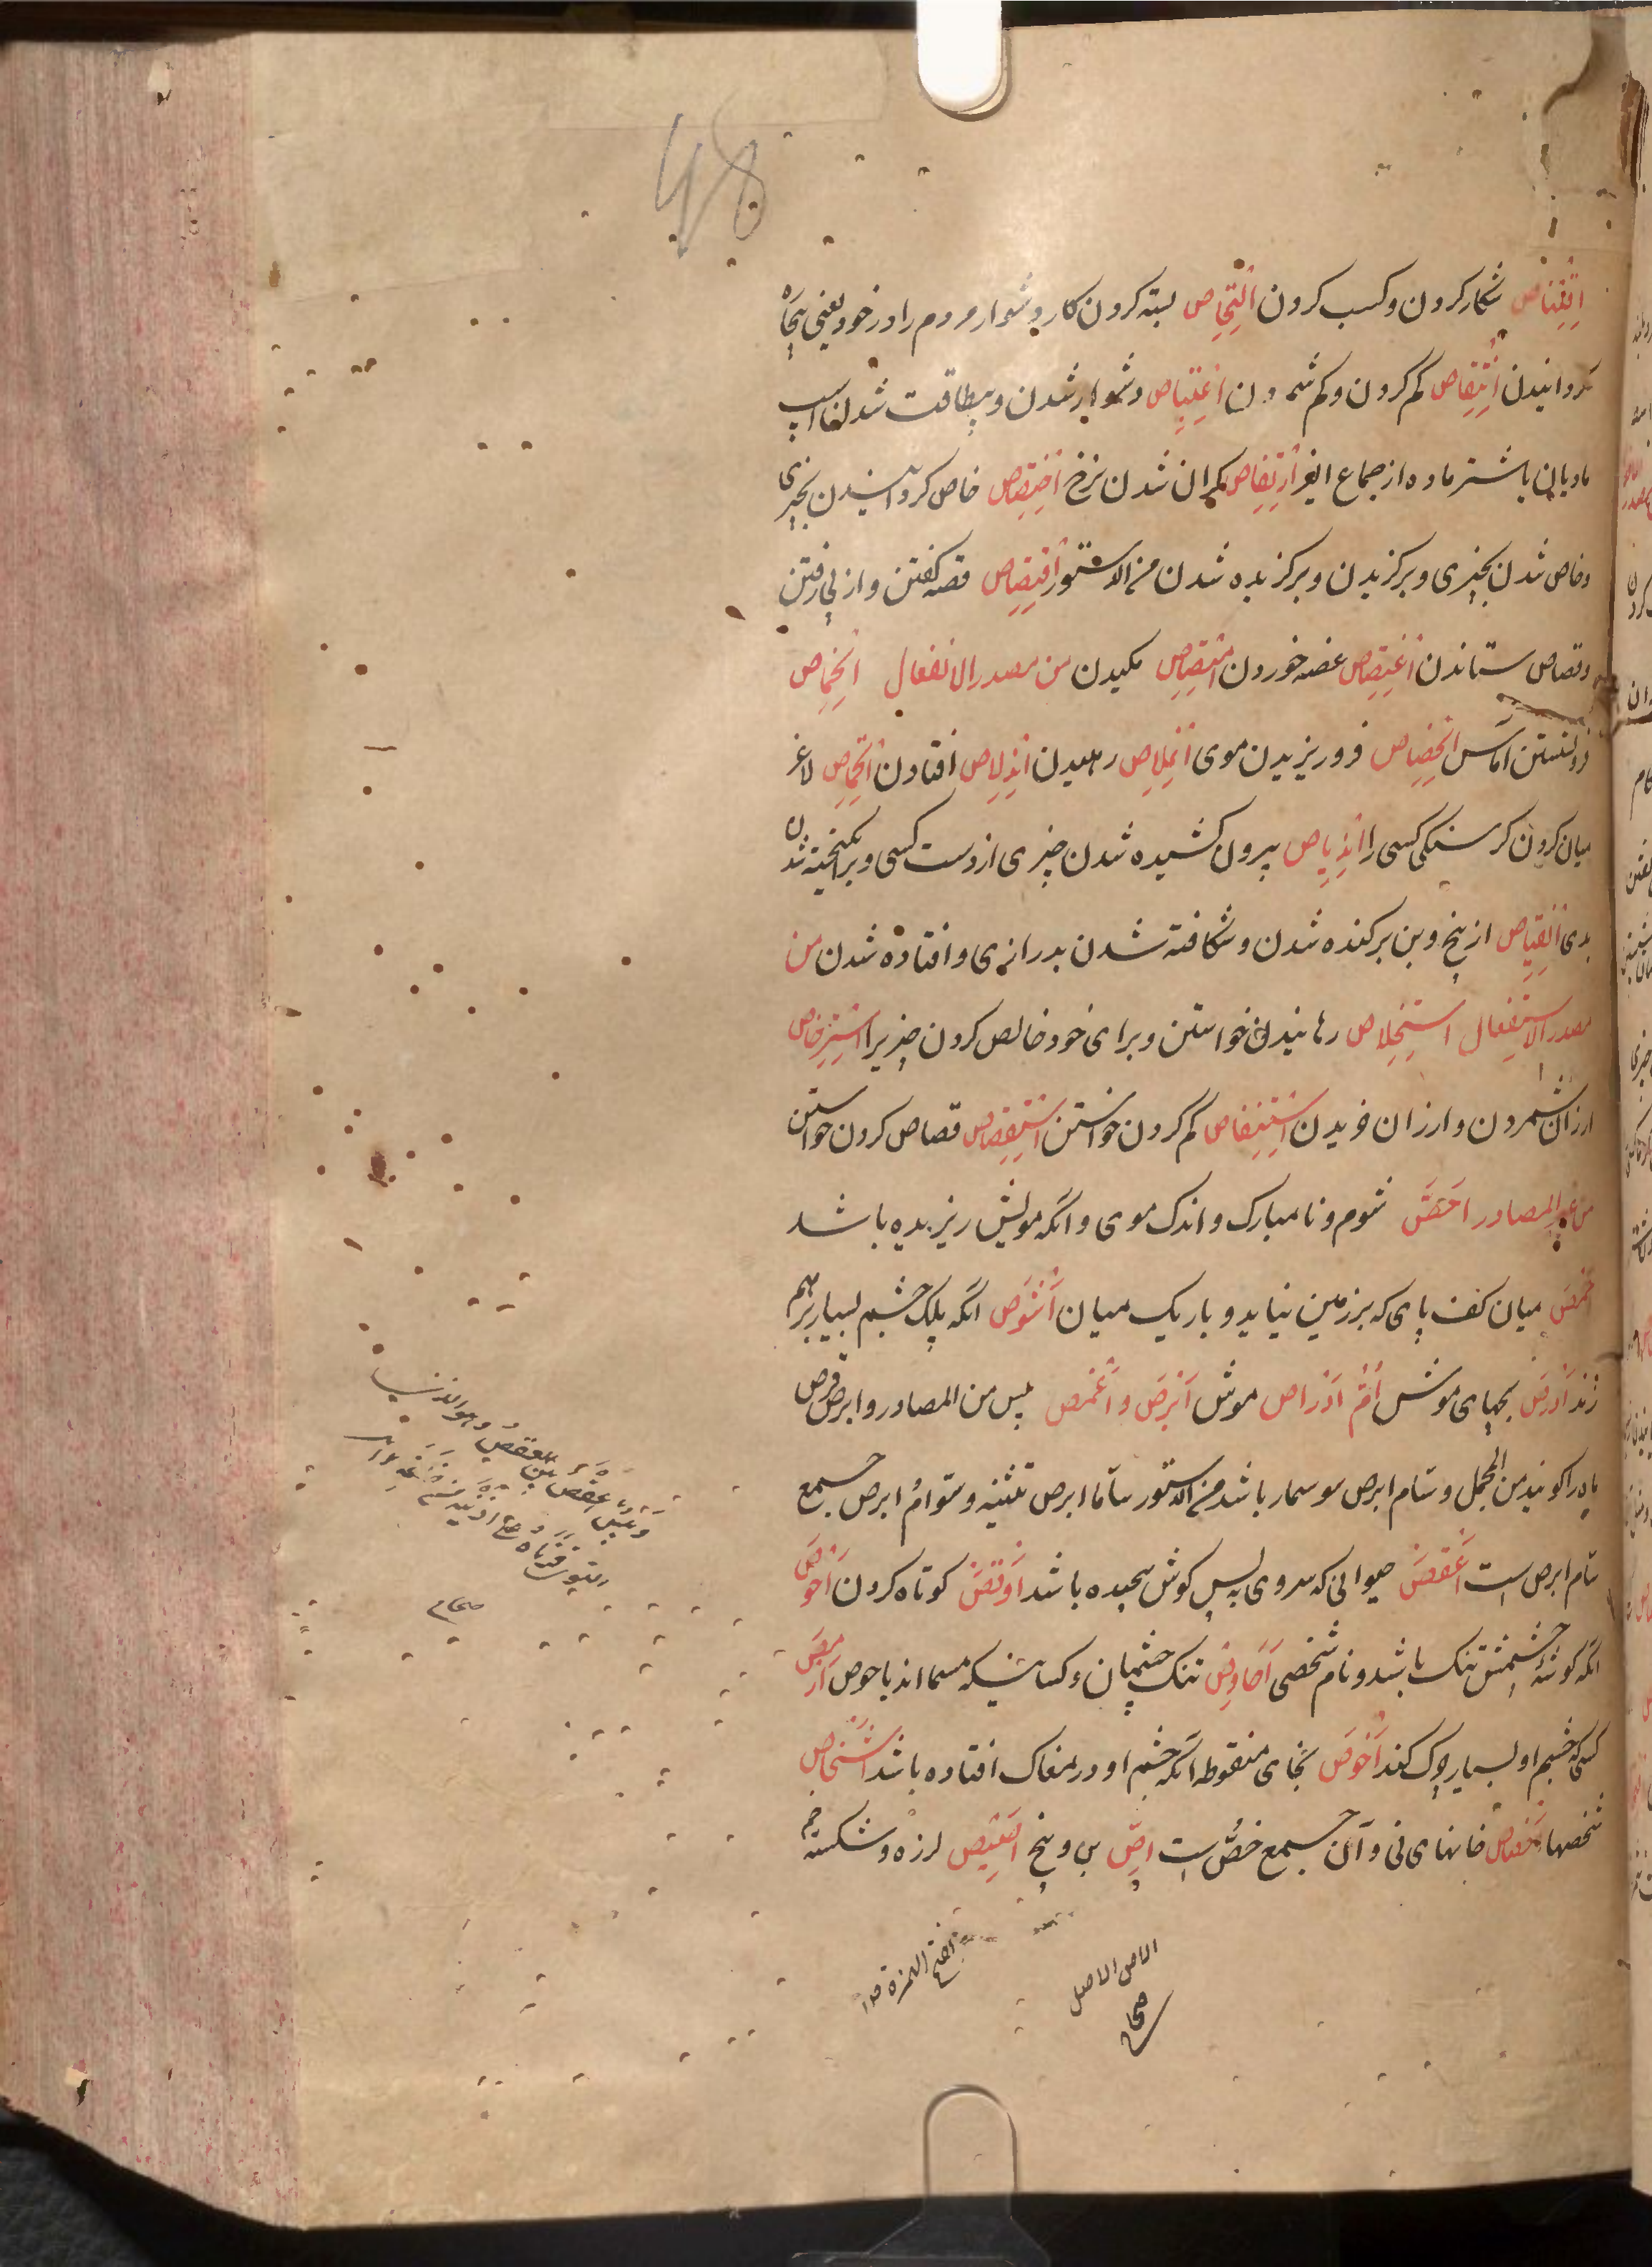 48
اِقْتِناص شکار کردن و کسب کردن اِلْتِحاص بسته کردن کار دشوار مردم را در خود یعنی بیجاه
کردانیدن اِنْتِقاص کم کردن و کم شمردن اِعْتِیاص دشوار شدن و بیطاقت شدن اسپ
مادیان یا شتر ماده از جماع اِرْتِفاص کران شدن نرخ اِخْتِصاص خاص کردانیدن بچیزی
و خاص شدن بچیزی و برکزیدن و برکزیده شدن من الدستور اِقْتِصاص قصه کفتن و از پی رفتن
و قصاص ستاندن اِغْتِصاص غصه خوردن اِمْتِصاص مکیدن من مصدر الانفعال اِنْخِماص
فرو نشستن آماس اِنْحِصاص فرو ریزیدن موی اِنْمِلاص رهیدن اِنْدِلاص افتادن اِنْخِماص لاغر
میان کردن کرسنکی کسی را اِنْدِیاص بیرون کشیده شدن چیزی از دست کسی و برانکیخته شدن
بدی اِنْقِیاص از بیخ و بن برکنده شدن و شکافته شدن بدرازی و افتاده شدن من
مصدر الاستفعال اِسْتِخْلاص رهانیدن خواستن و برای خود خالص کردن چیزیرا اِسْتِرْخاص
ارزان شمردن و ارزان خریدن اِسْتِنْقاص کم کردن خواستن اِسْتِقْصاص قصاص کردن خواستن
من غیر المصادر اَحَصّ شوم و نامبارک و اندک موی و آنکه مویش ریزیده باشد
اَخْمَص میان کف پای که بر زمین نیاید و باریک میان اَشْوَص آنکه پلک چشم بسیار برهم
زند اَدْرَص بچهای موش اُمّ اَدْراص موش اَبْرَص و اَغْمَص پیس من المصادر و ابرص قرص
ماه را کویند من المجمل و سام ابرص سوسمار باشد من الدستور سامّا ابرص تثنیه و سوامّ ابرص جمع
سام ابرص است اَعْقَص حیوانی که سروی به پس کوش پیچیده باشد اَوْقَص کوتاه کردن اَحْوَص
آنکه کوشهٔ چشمش تنک باشد و نام شخصی اَحاوِص تنک چشمان و کسانیکه مسمااند باحوص اَرْمَص
کسی که چشم او بسیار چک کند اَخْوَص بخای منقوطه آنکه چشم او در مغاک افتاده باشد اَشْخاص
شخصها اَخْصاص خانهای نی و آن جمع خصّ است اِصّ بن و بیخ لرزه و شکسته
وتیس اعقص بین العقص وهو الذی
التوی قرناه علی اذنیه من خلفه
صحاح
الاص الاصل
صحاح
بفتح الهمزة